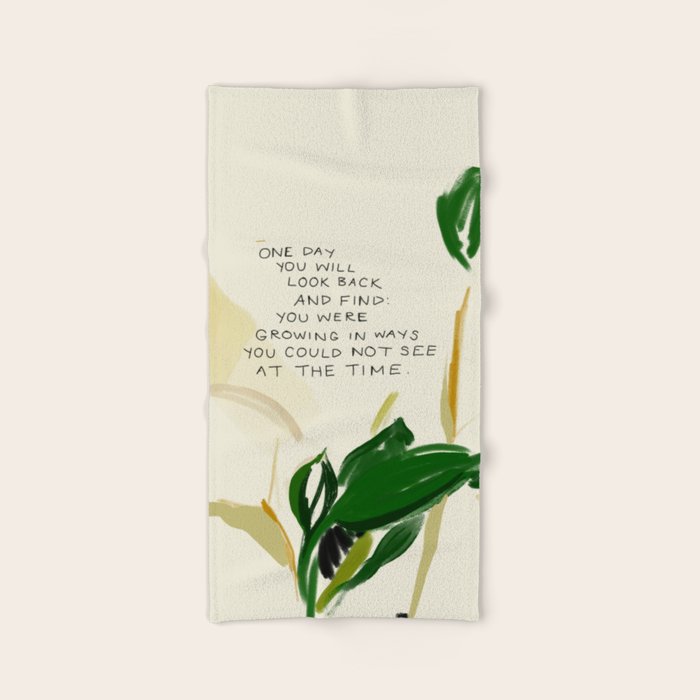 ONE DAY
YOU WILL
LOOK BACK
AND FIND:
YOU WERE
GROWING IN WAYS
YOU COULD NOT SEE
AT THE TIME.